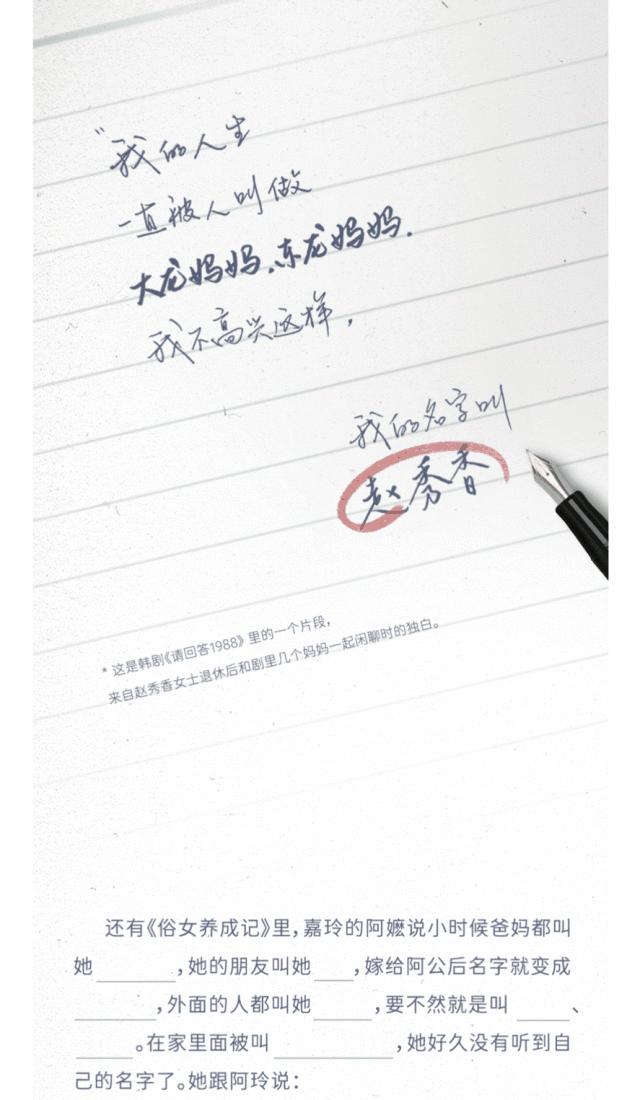 “我的人生
一直被人叫做
大龙妈妈.东龙妈妈.
我不高兴这样，
我的名字叫
赵秀香
* 这是韩剧《请回答1988》里的一个片段，
来自赵秀香女士退休后和剧里几个妈妈一起闲聊时的独白。
还有《俗女养成记》里，嘉玲的阿嬷说小时候爸妈都叫
她________，她的朋友叫她____，嫁给阿公后名字就变成
________，外面的人都叫她______，要不然就是叫 _____、
______。在家里面被叫 ____________，她好久没有听到自
己的名字了。她跟阿玲说：